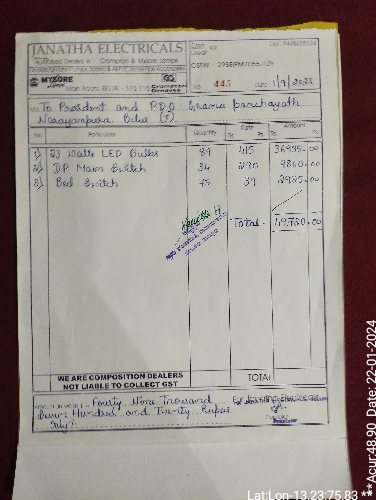 Cash
Credit
Cell: 9448655024
JANATHA ELECTRICALS
Authorised Dealers in : Crompton & Mysore Lamps
MYSORE
Lamps
CG
Crompton
Greaves
Main Road, BELUR - 573 115
GSTIN :
No. 443 Date: 1/9/2023
To President and P.D.O Grama panchayath
Narayanpura Belur (T)
No. Particulars Quantity Rate Amount
Rs. Ps. Rs. Ps.
1) 23 Watts LED Bulbs 89 415 36935.00
2) DP Main Switch 34 290 9860.00
3) Bed Switch 75 39 2925.00
Total - 49,720.00
WE ARE COMPOSITION DEALERS
NOT LIABLE TO COLLECT GST
TOTAL
Fourty Nine Thousand
Seven Hundred and Twenty Rupees
only
For Janatha Electricals
Lat Lon-13.23;75.83 ***Acur-48.90 Date: 22-01-2024